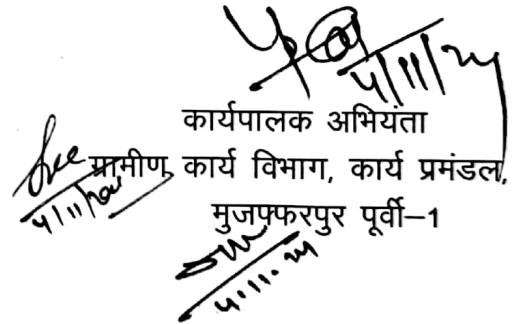 4/11/24
कार्यपालक अभियंता
ग्रामीण कार्य विभाग, कार्य प्रमंडल,
4/11/24
मुजफ्फरपुर पूर्वी–1
4.11.24